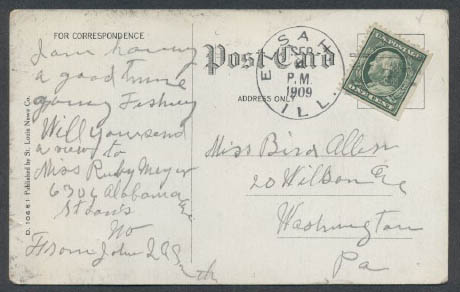 FOR CORRESPONDENCE
I am having
a good time
going Fishing
Will you send
a view to
Miss Ruby Meyer
6306 Alabama
St Louis
Mo
From John
Post Card
ADDRESS ONLY
ELSAH
SEP
P.M.
1909
ILL.
U.S. POSTAGE
ONE CENT
Miss Bird Allen
20 Wilson Ave
Washington
Pa
D 10661 Published by St. Louis News Co.